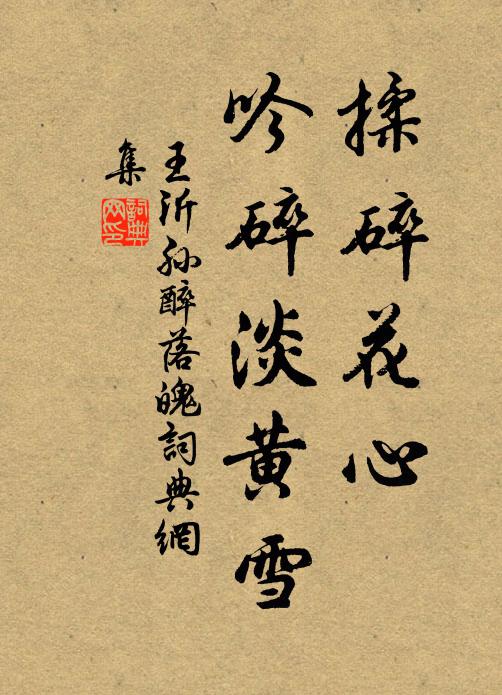 揉碎花心
吟碎淡黄雪
王沂孙醉落魄詞典網
集
詞典網印